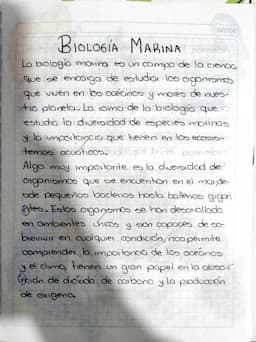 BIOLOGÍA MARINA
La biología marina es un campo de la ciencia
que se encarga de estudiar los organismos
que viven en los océanos y mares de nues-
tro planeta. La rama de la biología que
estudia la diversidad de especies marinas
y la importancia que tienen en los ecosis-
temas acuáticos.
Algo muy importante es la diversidad de
organismos que se encuentran en el mar, de-
sde pequeñas bacterias hasta ballenas gigan
ntes. Estos organismos se han desarrollado
en ambientes únicos y son capaces de so-
brevivir en cualquier condición, nos permite
comprender la importancia de los océanos
y el clima, tienen un gran papel en la absor-
rción de dióxido de carbono y la producción
de oxígeno.